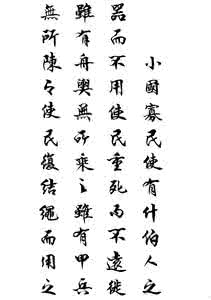 小國寡民使有什伯人之
器而不用使民重死而不遠徙
雖有舟輿無所乘之雖有甲兵
無所陳之使民復結繩而用之